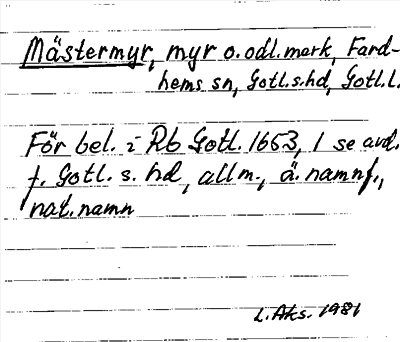 Mästermyr, myr o. odl. mark, Fard-
hems sn, Gotl.s.hd, Gotl.l.
För bel. i Rb Gotl. 1653, 1 se avd.
f. Gotl. s. hd, allm., ä. namnf.,
nat.namn
L. Aks. 1981